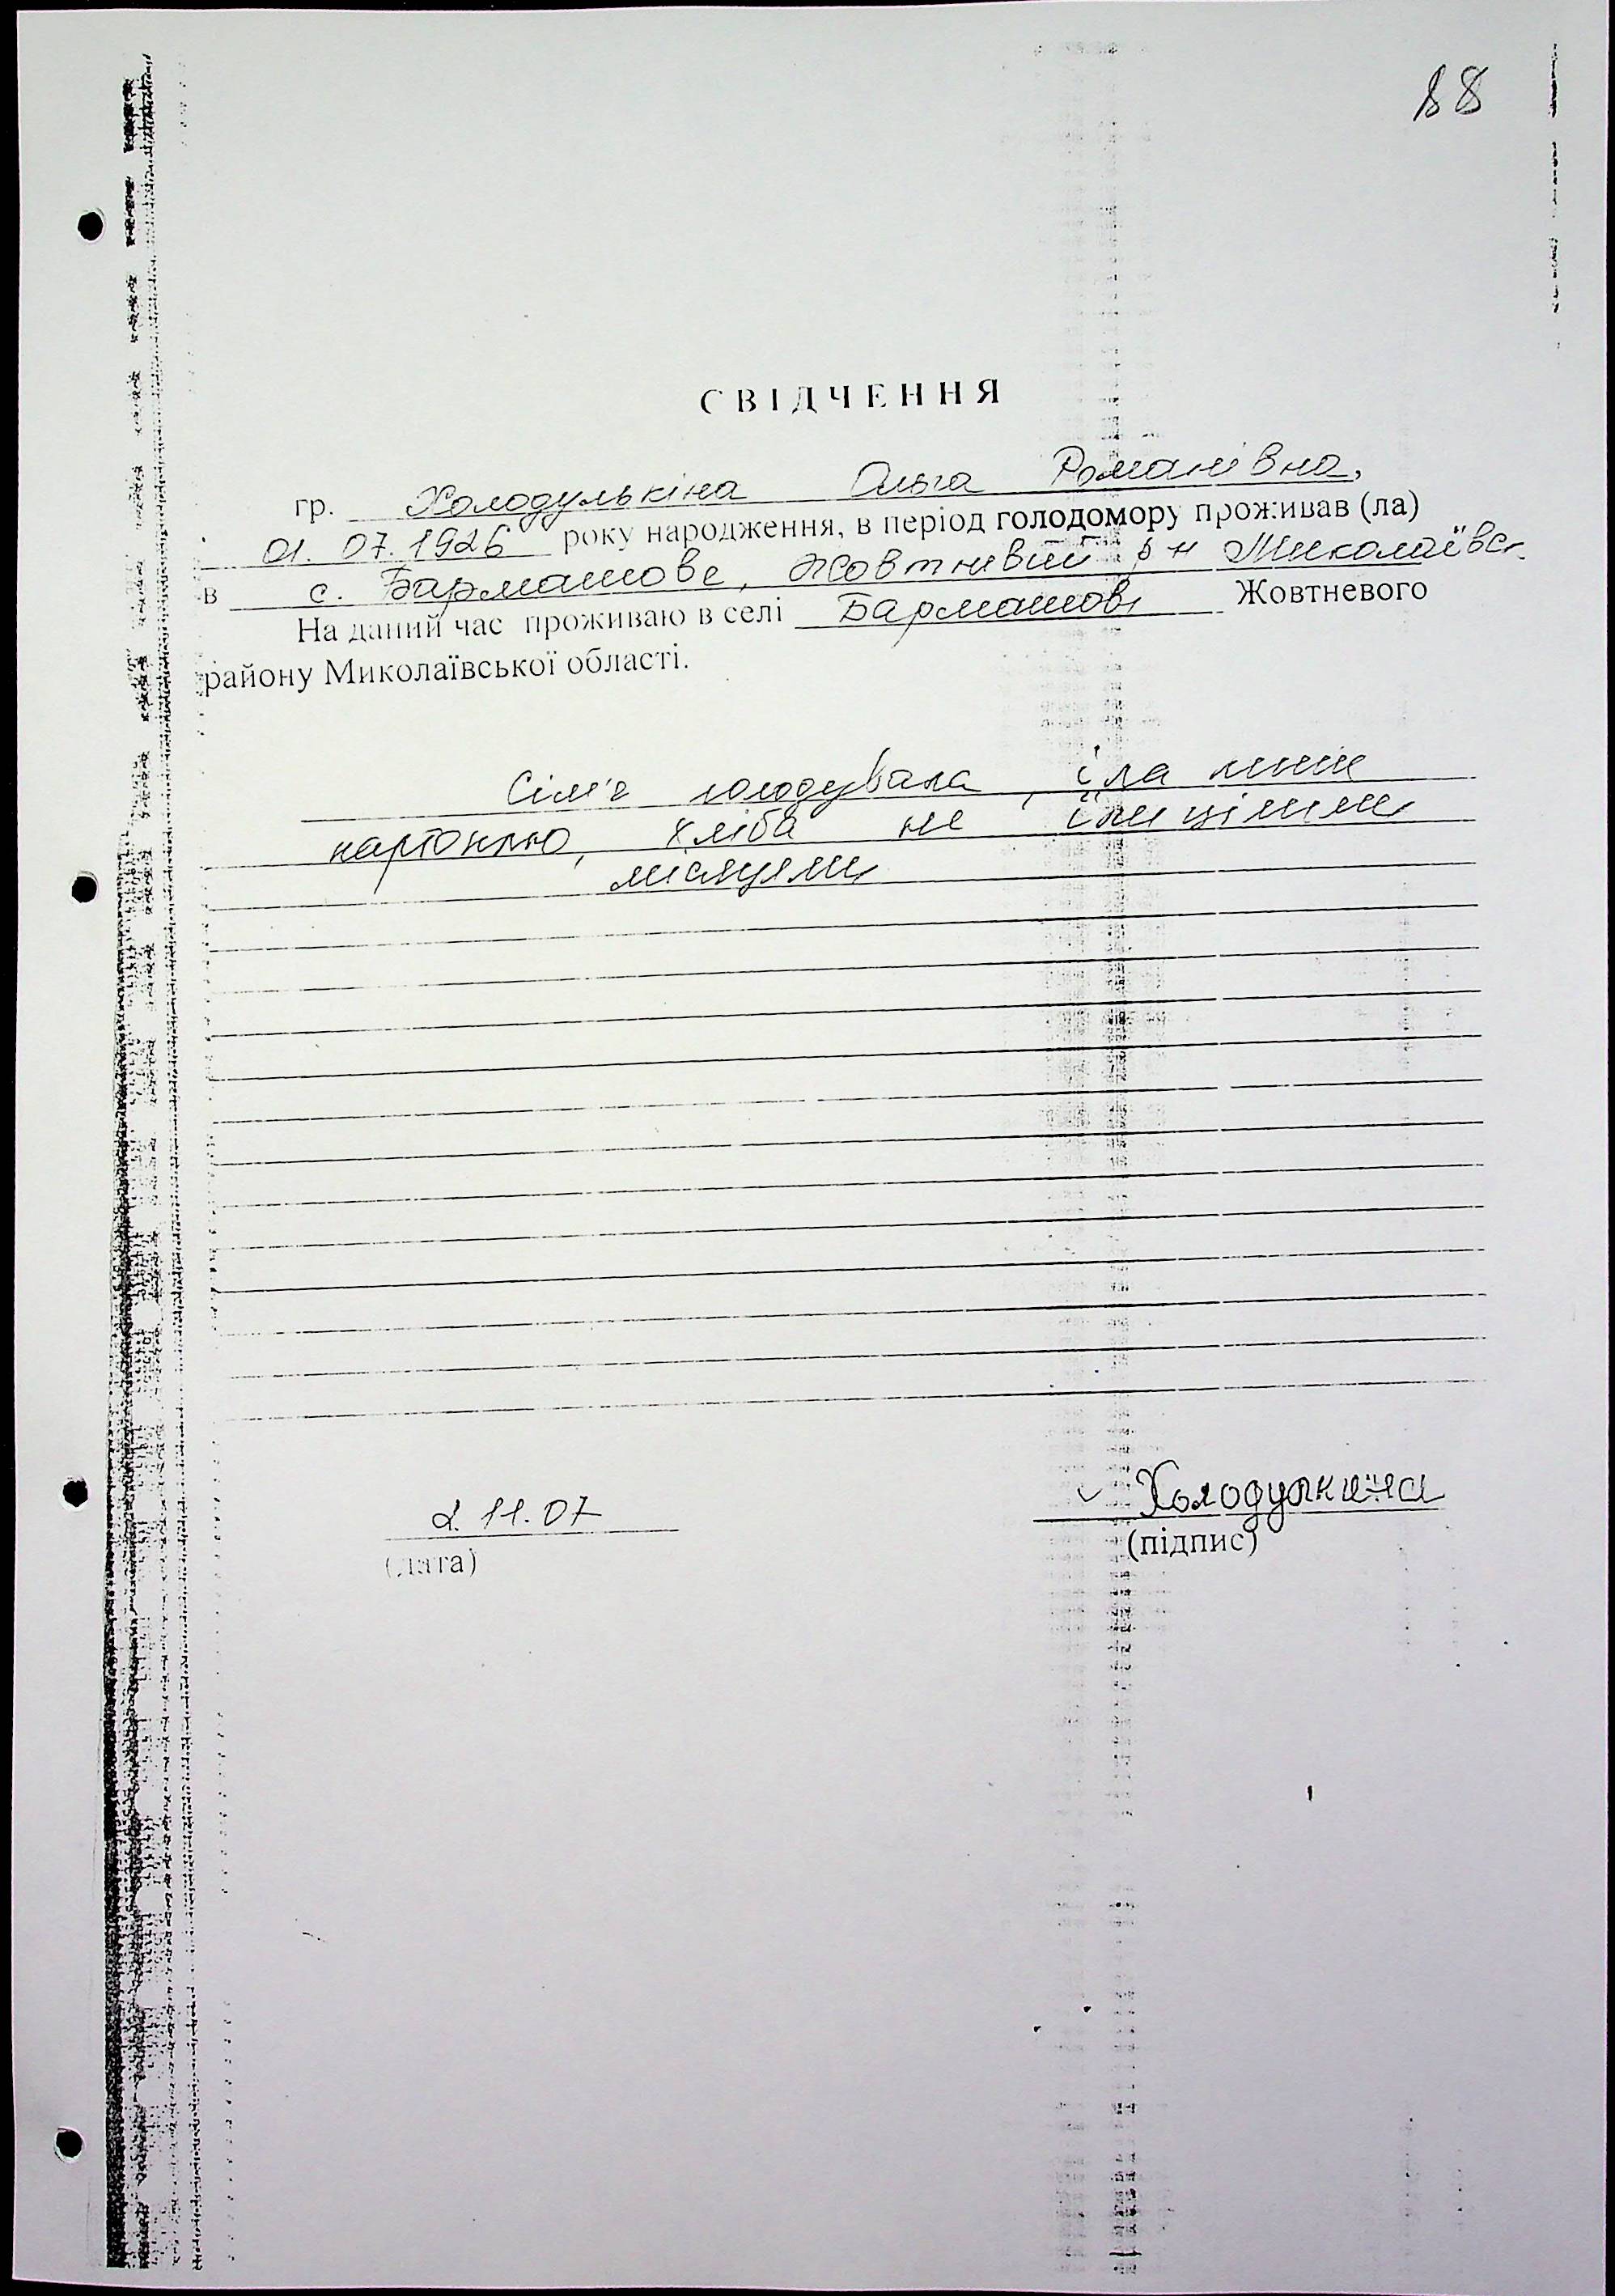 88
СВІДЧЕННЯ
гр. Холодулькіна Ольга Романівна,
01. 07. 1926 року народження, в період голодомору проживав (ла)
в с. Бармашове, Жовтневий р-н Миколаївс.
На даний час проживаю в селі Бармашові Жовтневого
району Миколаївської області.
Сім'я голодувала, їла лише
картоплю, хліба не їли цілими
місяцями
2. 11. 07 Холодулкина
(дата) (підпис)